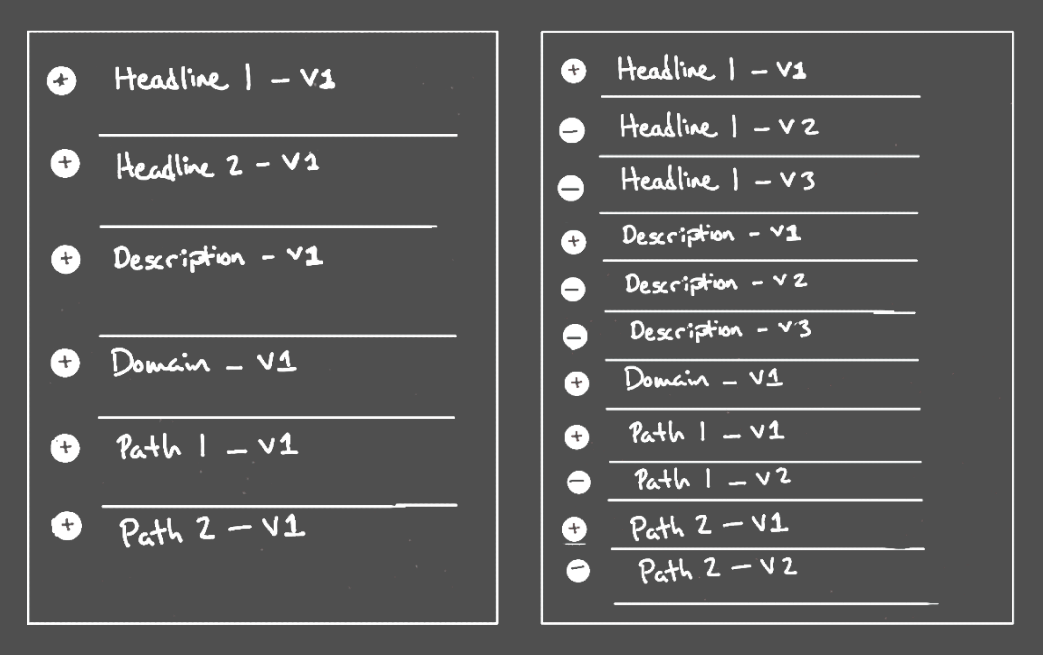 Headline 1 - V1
Headline 2 - V1
Description - V1
Domain - V1
Path 1 - V1
Path 2 - V1
Headline 1 - V1
Headline 1 - V2
Headline 1 - V3
Description - V1
Description - V2
Description - V3
Domain - V1
Path 1 - V1
Path 1 - V2
Path 2 - V1
Path 2 - V2